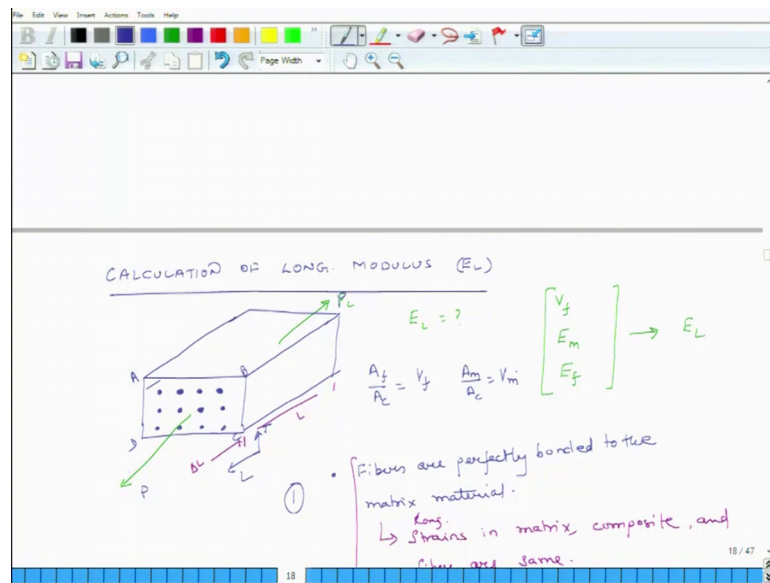 File Edit View Insert Actions Tools Help
B I
Page Width
CALCULATION OF LONG. MODULUS (EL)
PL
EL = ?
Vf
Em
Ef
→ EL
A B
Af/Ac = Vf Am/Ac = Vm
D
L
ΔL
T
L
P
1
• Fibers are perfectly bonded to the
matrix material.
Long.
↳ Strains in matrix, composite, and
fiber are same.
18 / 47
18